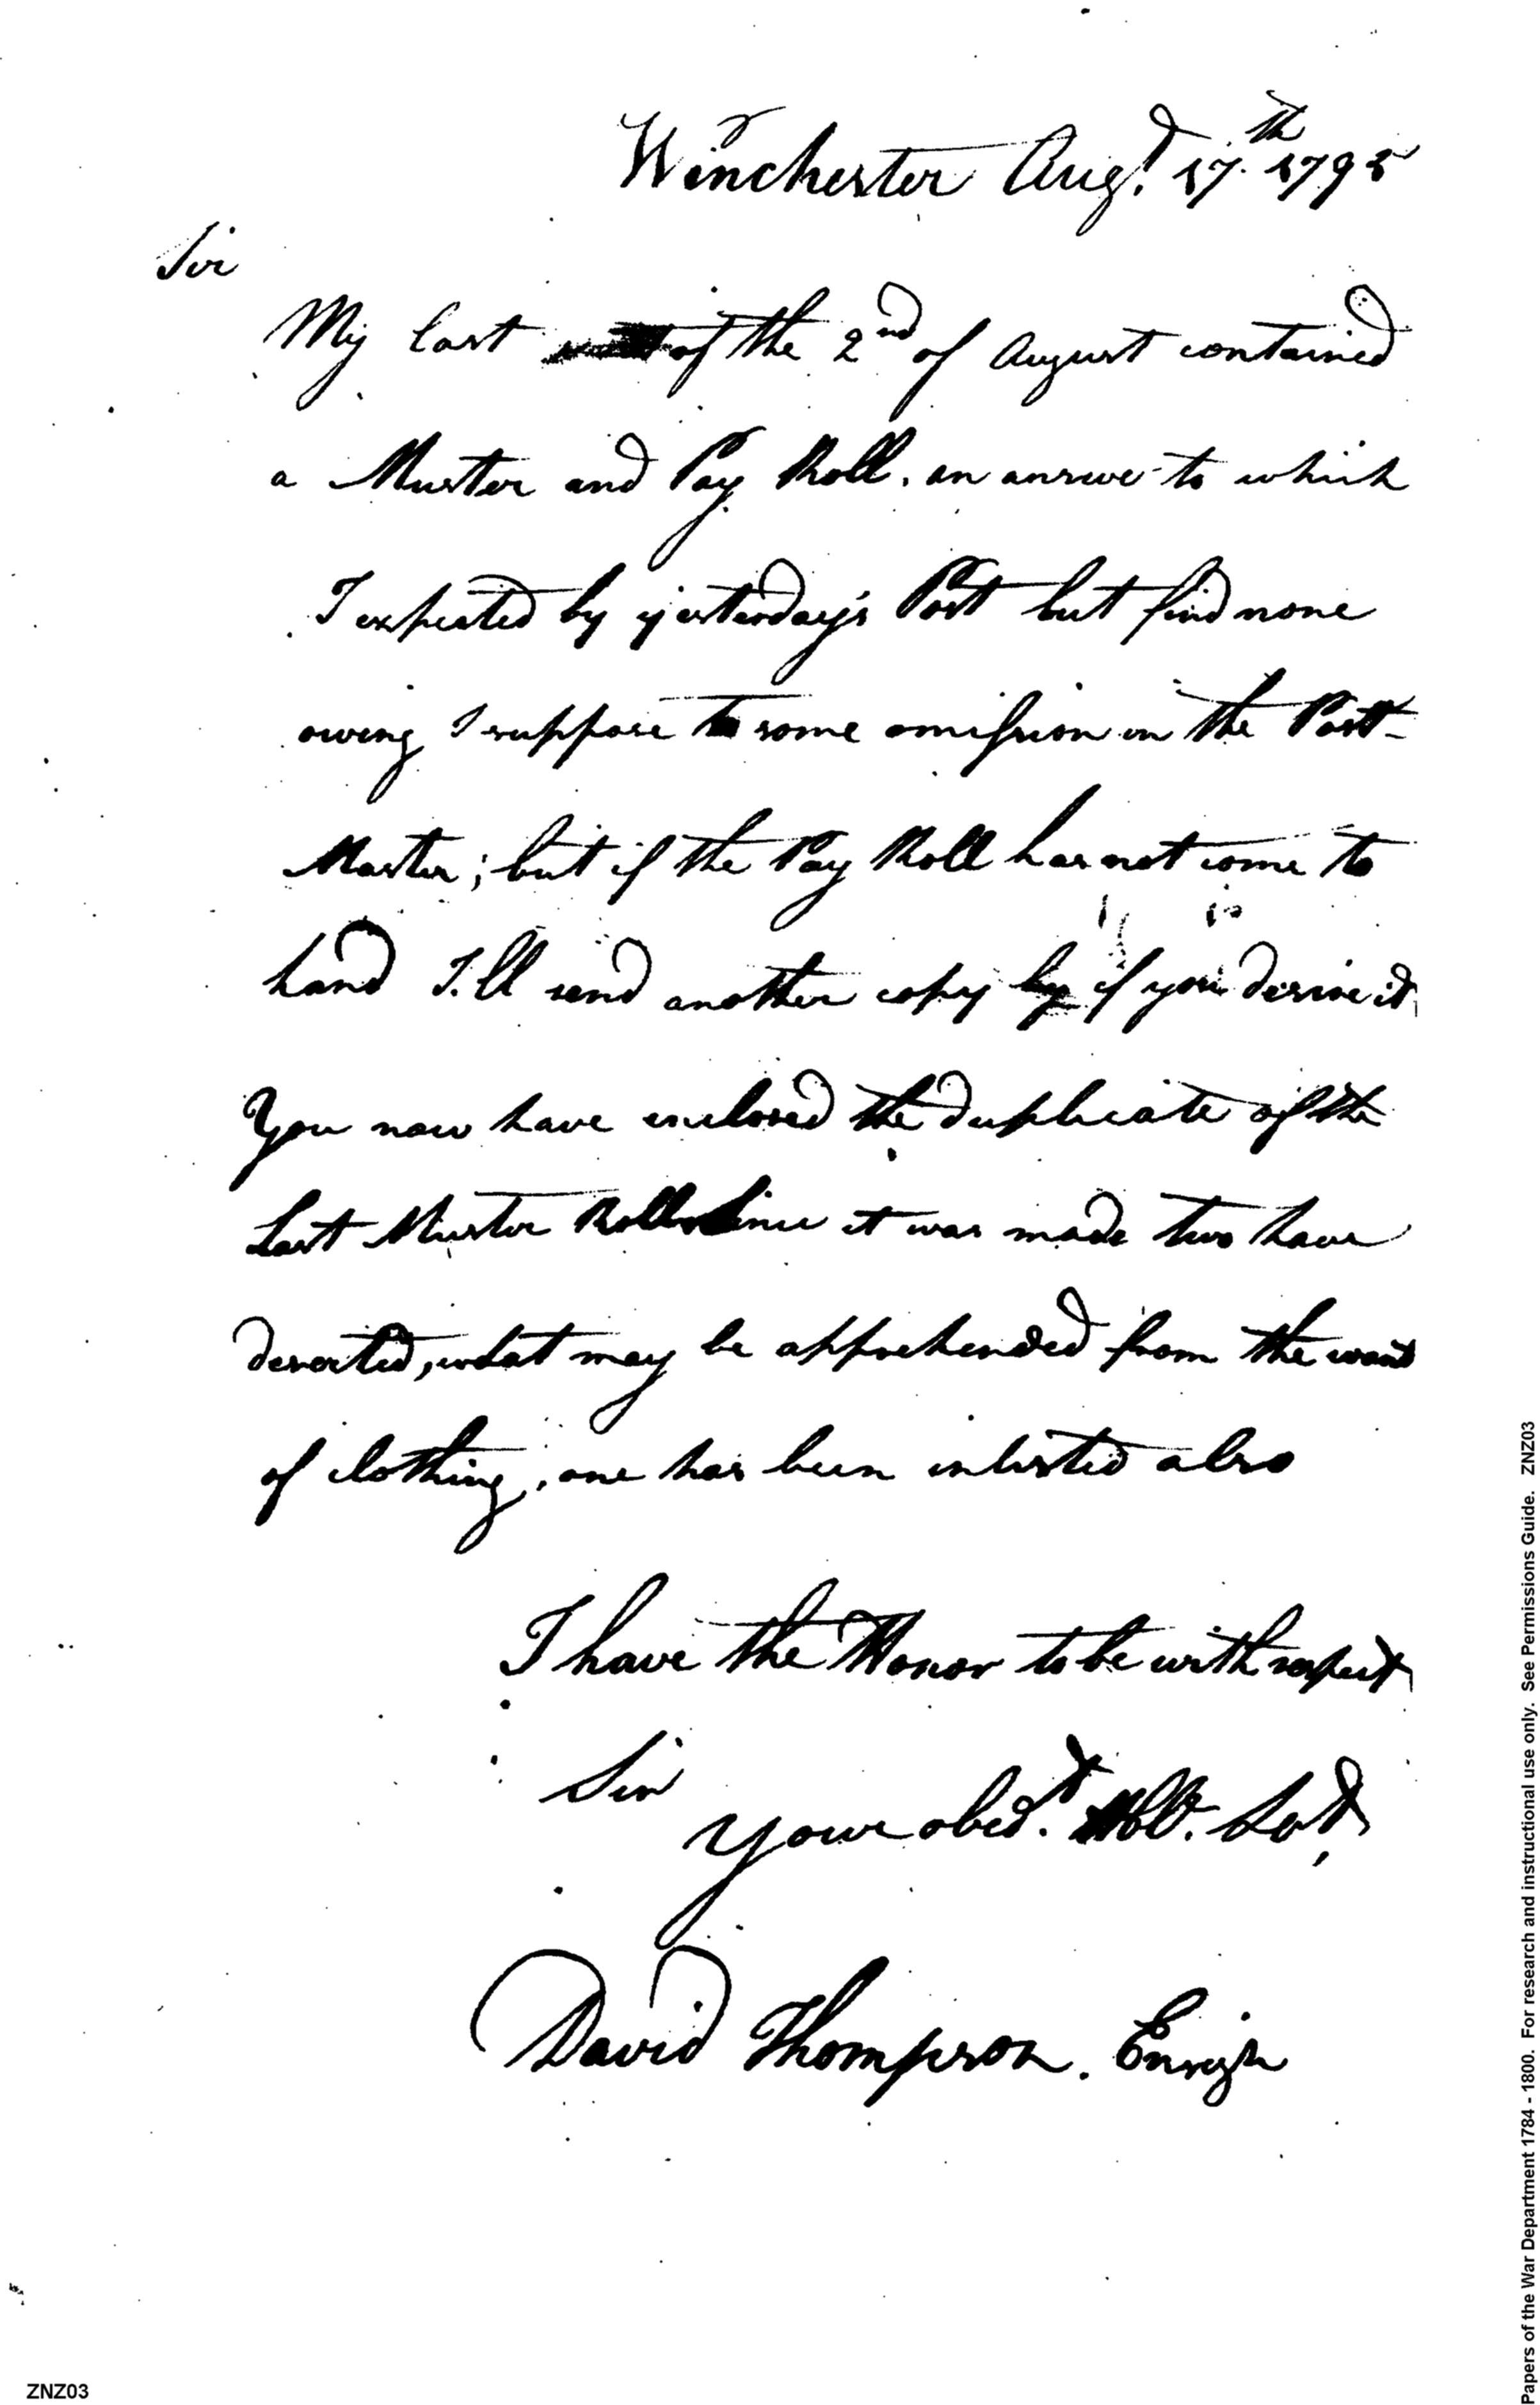 Winchester Augt. 17th. 1795
Sir
My last of the 2nd of August contained
a Muster and Pay Roll, an answer to which
I expected by yesterday's Post but find none
owing I suppose to some omission in the Post-
Master; but if the Pay Roll has not come to
hand I'll send another copy by if you desire it
You now have inclosed the duplicate of the
Last Muster Roll Since it was made two have
deserted, what may be apprehended from the want
of clothing, one has been inlisted also
I have the Honor to be with respect
Sir
your obedt. Hble. Sert,
David Thompson. Ensign
ZNZ03
Papers of the War Department 1784 - 1800. For research and instructional use only. See Permissions Guide. ZNZ03